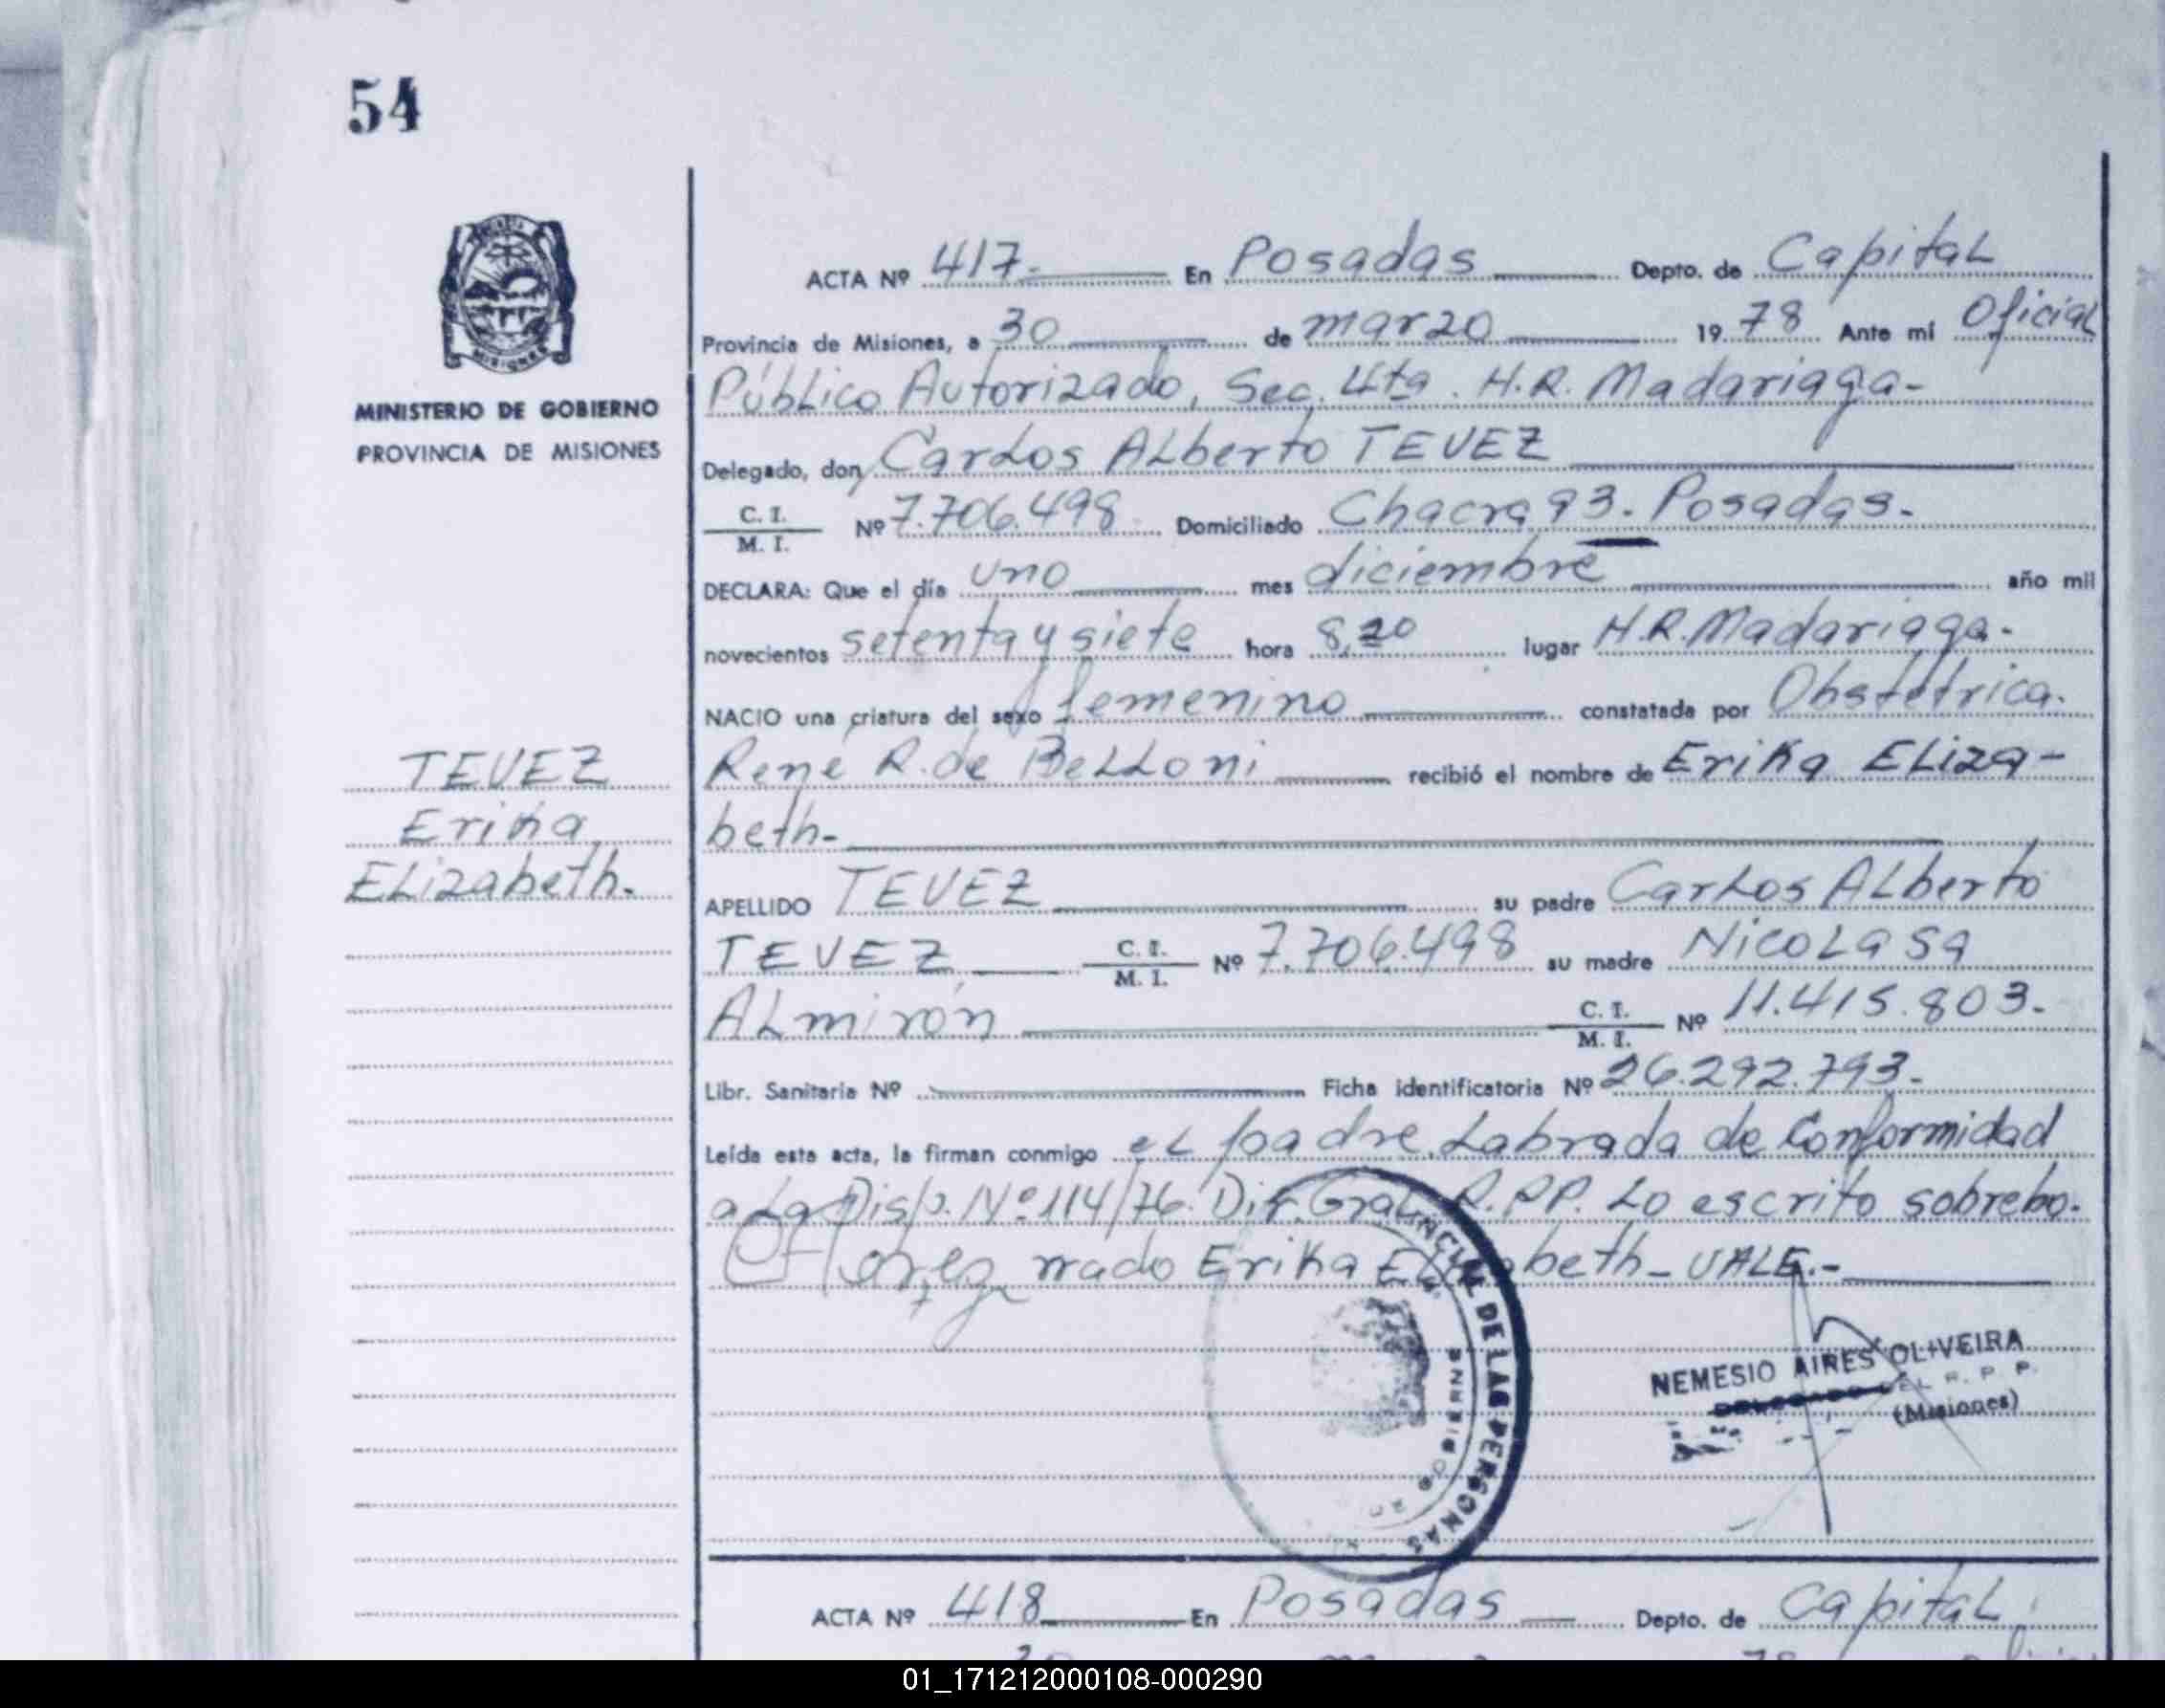 54
MINISTERIO DE GOBIERNO
PROVINCIA DE MISIONES
TEVEZ
Erika
Elizabeth.
ACTA Nº 417- En Posadas Depto. de Capital
Provincia de Misiones, a 30 de marzo 19 78 Ante mi Oficial
Público Autorizado, Sec. 4ta. H.R. Madariaga-
Delegado, don Carlos Alberto TEVEZ
C. I. / M. I. Nº 7.706.498 Domiciliado Chacra 93. Posadas.
DECLARA: Que el día uno mes diciembre año mil
novecientos setenta y siete hora 8,20 lugar H.R. Madariaga.
NACIO una criatura del sexo femenino constatada por Obstétrica.
René R. de Belloni recibió el nombre de Erika Eliza-
beth-
APELLIDO TEVEZ su padre Carlos Alberto
TEVEZ C. I. / M. I. Nº 7.706.498 su madre Nicolasa
Almirón C. I. / M. I. Nº 11.415.803.
Libr. Sanitaria Nº Ficha identificatoria Nº 26.292.793.
Leída esta acta, la firman conmigo el padre. Labrada de Conformidad
a la Disp. Nº 114/76. Dir. Gral. R.PP. Lo escrito sobrebo-
rrado Erika Elizabeth- VALE.-
PROVINCIAL DE LAS PERSONAS
GOBIERNO
NEMESIO AIRES OLIVEIRA
DELEGADO DEL R. P. P.
(Misiones)
ACTA Nº 418 En Posadas Depto. de Capital
01_171212000108-000290